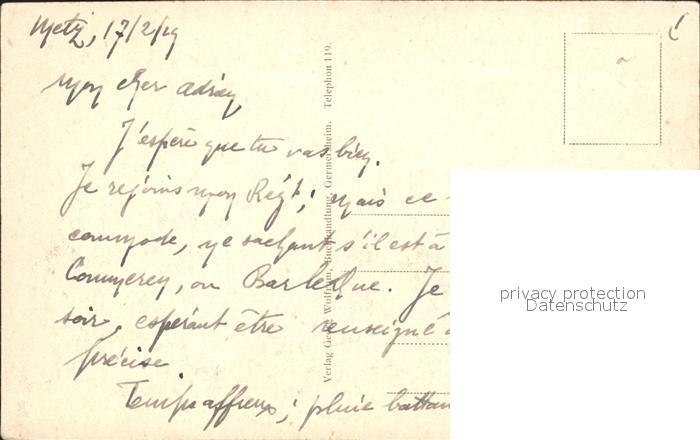 Metz, 17/2/19
Mon cher Adrien,
J'espère que tu vas bien.
Je rejoins mon Régt; mais ce
commode, ne sachant s'il est à
Commercy, ou Bar le Duc. Je
soir, espérant être renseigné
précise.
Temps affreux; pluie battan
Verlag Georg Wolfram, Buchhandlung, Germersheim. Telephon 119.
privacy protection
Datenschutz